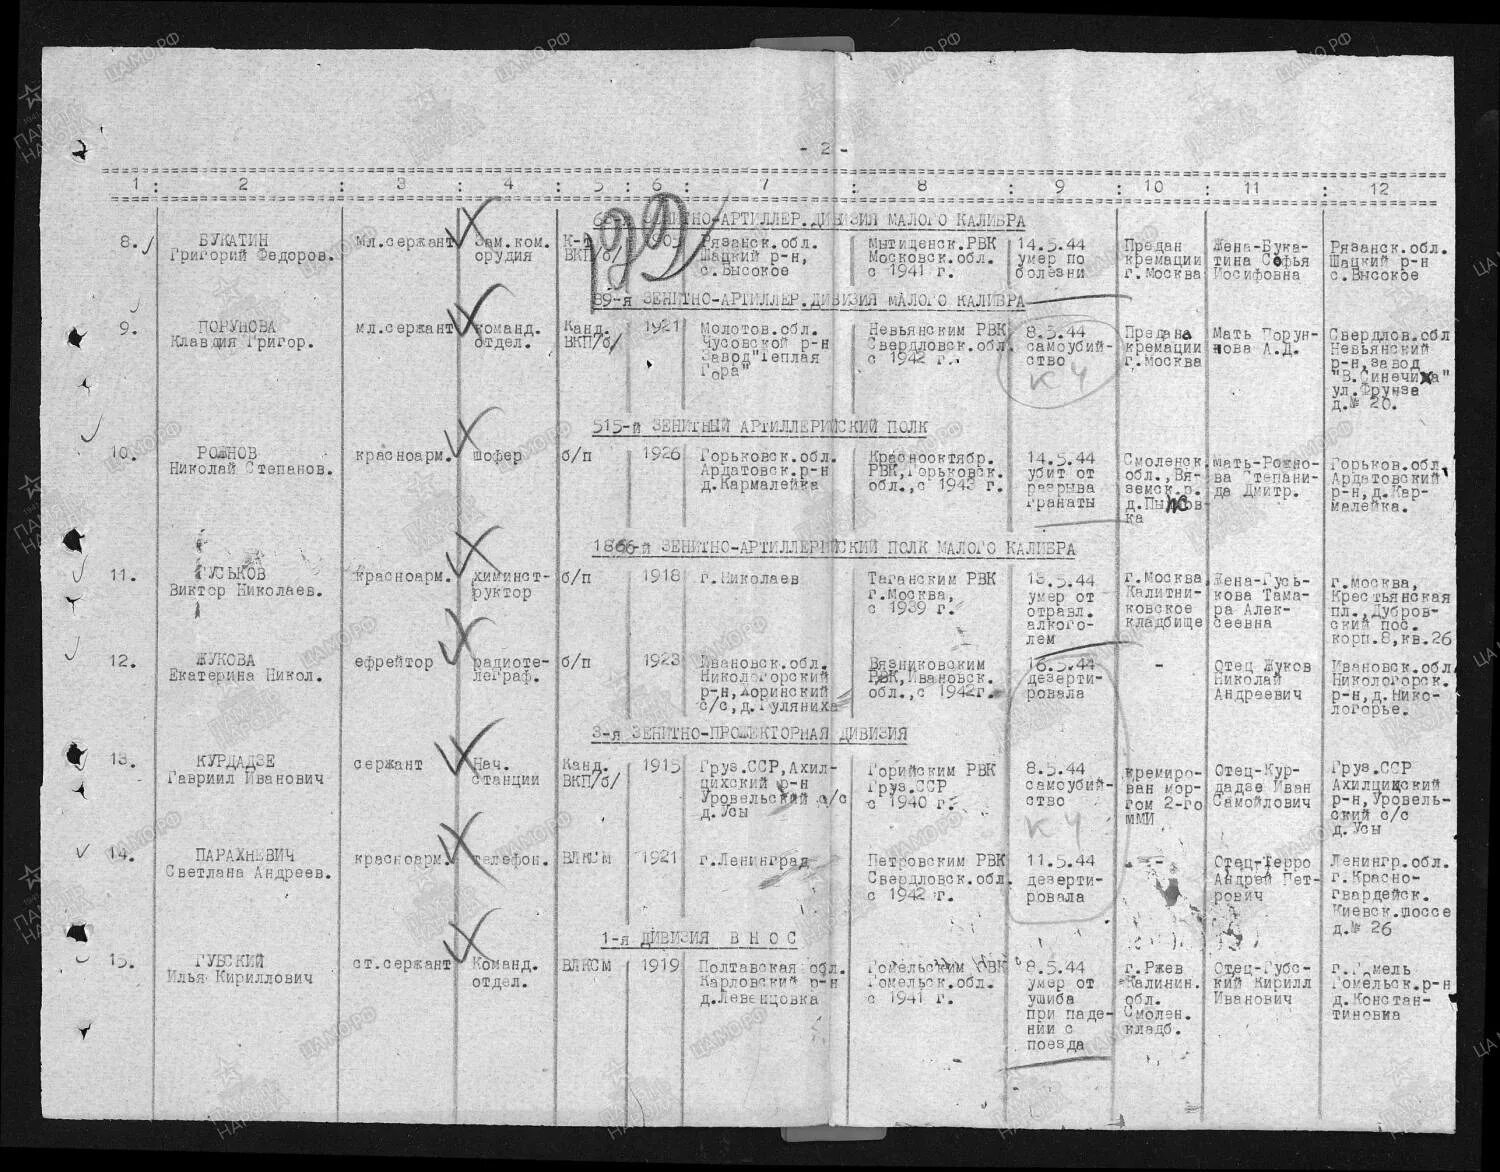 - 2 -
1 : 2 : 3 : 4 : 5 : 6 : 7 : 8 : 9 : 10 : 11 : 12
ЗЕНИТНО-АРТИЛЛЕР.ДИВИЗИЯ МАЛОГО КАЛИБРА
8. БУКАТИН
Григорий Федоров.
мл.сержант
Зам.ком.
орудия
К-т
ВКП/б/
1905
Рязанск.обл.
Шацкий р-н,
с.Высокое
Мытищенск.РВК
Московск.обл.
с 1941 г.
14.5.44
умер по
болезни
Предан
кремации
г.Москва
Жена-Бука-
тина Софья
Иосифовна
Рязанск.обл.
Шацкий р-н
с.Высокое
89-я ЗЕНИТНО-АРТИЛЛЕР.ДИВИЗИЯ МАЛОГО КАЛИБРА
9. ПОРУНОВА
Клавдия Григор.
мл.сержант
команд.
отдел.
Канд.
ВКП/б/
1921
Молотов.обл.
Чусовской р-н
Завод"Теплая
Гора"
Невьянским РВК
Свердловск.обл.
с 1942 г.
8.5.44
самоубий-
ство
К Ч
Предана
кремации
г.Москва
Мать Порун-
нова А.Д.
Свердлов.обл
Невьянский
р-н,завод
"В.Синечиха"
ул.Фрунзе
д.№ 20.
515-й ЗЕНИТНЫЙ АРТИЛЛЕРИЙСКИЙ ПОЛК
10. РОЖНОВ
Николай Степанов.
красноарм.
шофер
б/п
1926
Горьковск.обл.
Ардатовск.р-н
д.Кармалейка
Краснооктябр.
РВК,Горьковск.
обл.,с 1943 г.
14.5.44
убит от
разрыва
гранаты
Смоленск.
обл.,Вя-
земск.р.
ка
мать-Рожно-
ва Степани-
да Дмитр.
Горьков.обл.
Ардатовский
р-н,д.Кар-
малейка.
1866-й ЗЕНИТНО-АРТИЛЛЕРИЙСКИЙ ПОЛК МАЛОГО КАЛИБРА
11. ГУСЬКОВ
Виктор Николаев.
красноарм.
химинст-
руктор
б/п
1918
г.Николаев
Таганским РВК
г.Москва,
с 1939 г.
13.5.44
умер от
отравл.
алкого-
лем
г.Москва,
Калитни-
ковское
кладбище
Жена-Гусь-
кова Тама-
ра Алек-
сеевна
г.москва,
Крестьянская
пл.,Дубров-
ский пос.
корп.8,кв.26
12. ЖУКОВА
Екатерина Никол.
ефрейтор
радиоте-
леграф.
б/п
1923
Ивановск.обл.
Никологорский
р-н,Лоринский
с/с,д.Гуляниха
Вязниковским
РВК,Ивановск.
обл.,с 1942г.
16.5.44
дезерти-
ровала
-
Отец Жуков
Николай
Андреевич
Ивановск.обл
Никологорск.
р-н,д.Нико-
логорье.
3-я ЗЕНИТНО-ПРОЖЕКТОРНАЯ ДИВИЗИЯ
13. КУРДАДЗЕ
Гавриил Иванович
сержант
Нач.
станции
Канд.
ВКП/б/
1915
Груз.ССР,Ахил-
цихский р-н
Уровельский с/с
д.Усы
Горийским РВК
Груз.ССР
с 1940 г.
8.5.44
самоубий-
ство
К Ч
кремиро-
ван мор-
гом 2-го
мМИ
Отец-Кур-
дадзе Иван
Самойлович
Груз.ССР
Ахилцихский
р-н,Уровель-
ский с/с
д.Усы
14. ПАРАХНЕВИЧ
Светлана Андреев.
красноарм.
телефон.
ВЛКСМ
1921
г.Ленинград
Петровским РВК
Свердловск.обл.
с 1942 г.
11.5.44
дезерти-
ровала
-
Отец-Терро
Андрей Пет-
рович
Ленингр.обл.
г.Красно-
гвардейск.
Киевск.шоссе
д.№ 26
1-я ДИВИЗИЯ В Н О С
15. ГУБСКИЙ
Илья Кириллович
ст.сержант
Команд.
отдел.
ВЛКСМ
1919
Полтавская обл.
Карловский р-н
д.Левенцовка
Гомельским РВК
Гомельск.обл.
с 1941 г.
8.5.44
умер от
ушиба
при паде-
нии с
поезда
г.Ржев
Калинин.
обл.
Смолен.
кладб.
Отец-Губс-
кий Кирилл
Иванович
г.Гомель
Гомельск.р-н
д.Констан-
тиновка